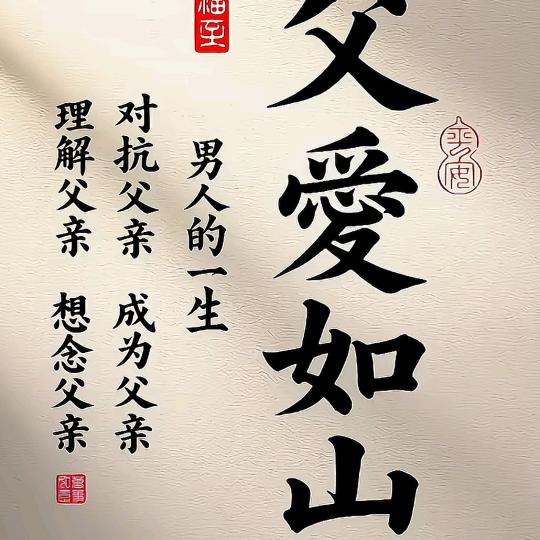 父愛如山
平安
男人的一生
福至
对抗父亲 成为父亲
理解父亲 想念父亲